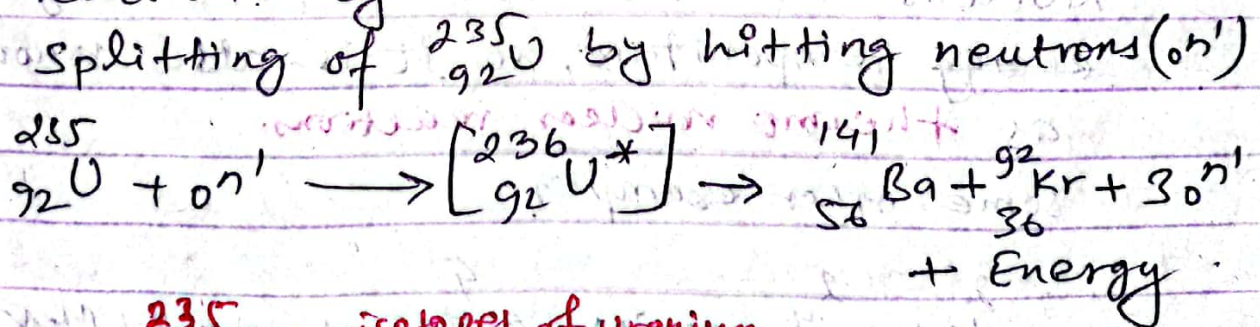 splitting of ²³⁵₉₂U by hitting neutrons (₀n¹)
²³⁵₉₂U + ₀n¹ ⟶ [²³⁶₉₂U*] → ¹⁴¹₅₆Ba + ⁹²₃₆Kr + 3₀n¹
+ Energy.
235 isotopes of uranium